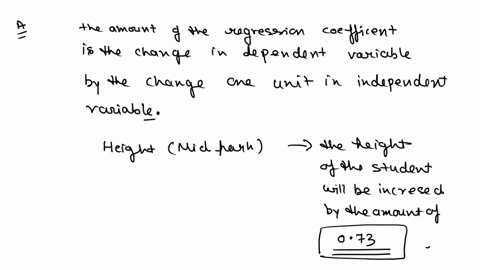 A
the amount of the regression coefficent
is the change in dependent variable
by the change one unit in independent
variable.
Height (Mid park) → the height
of the student
will be incresed
by the amount of
0.73